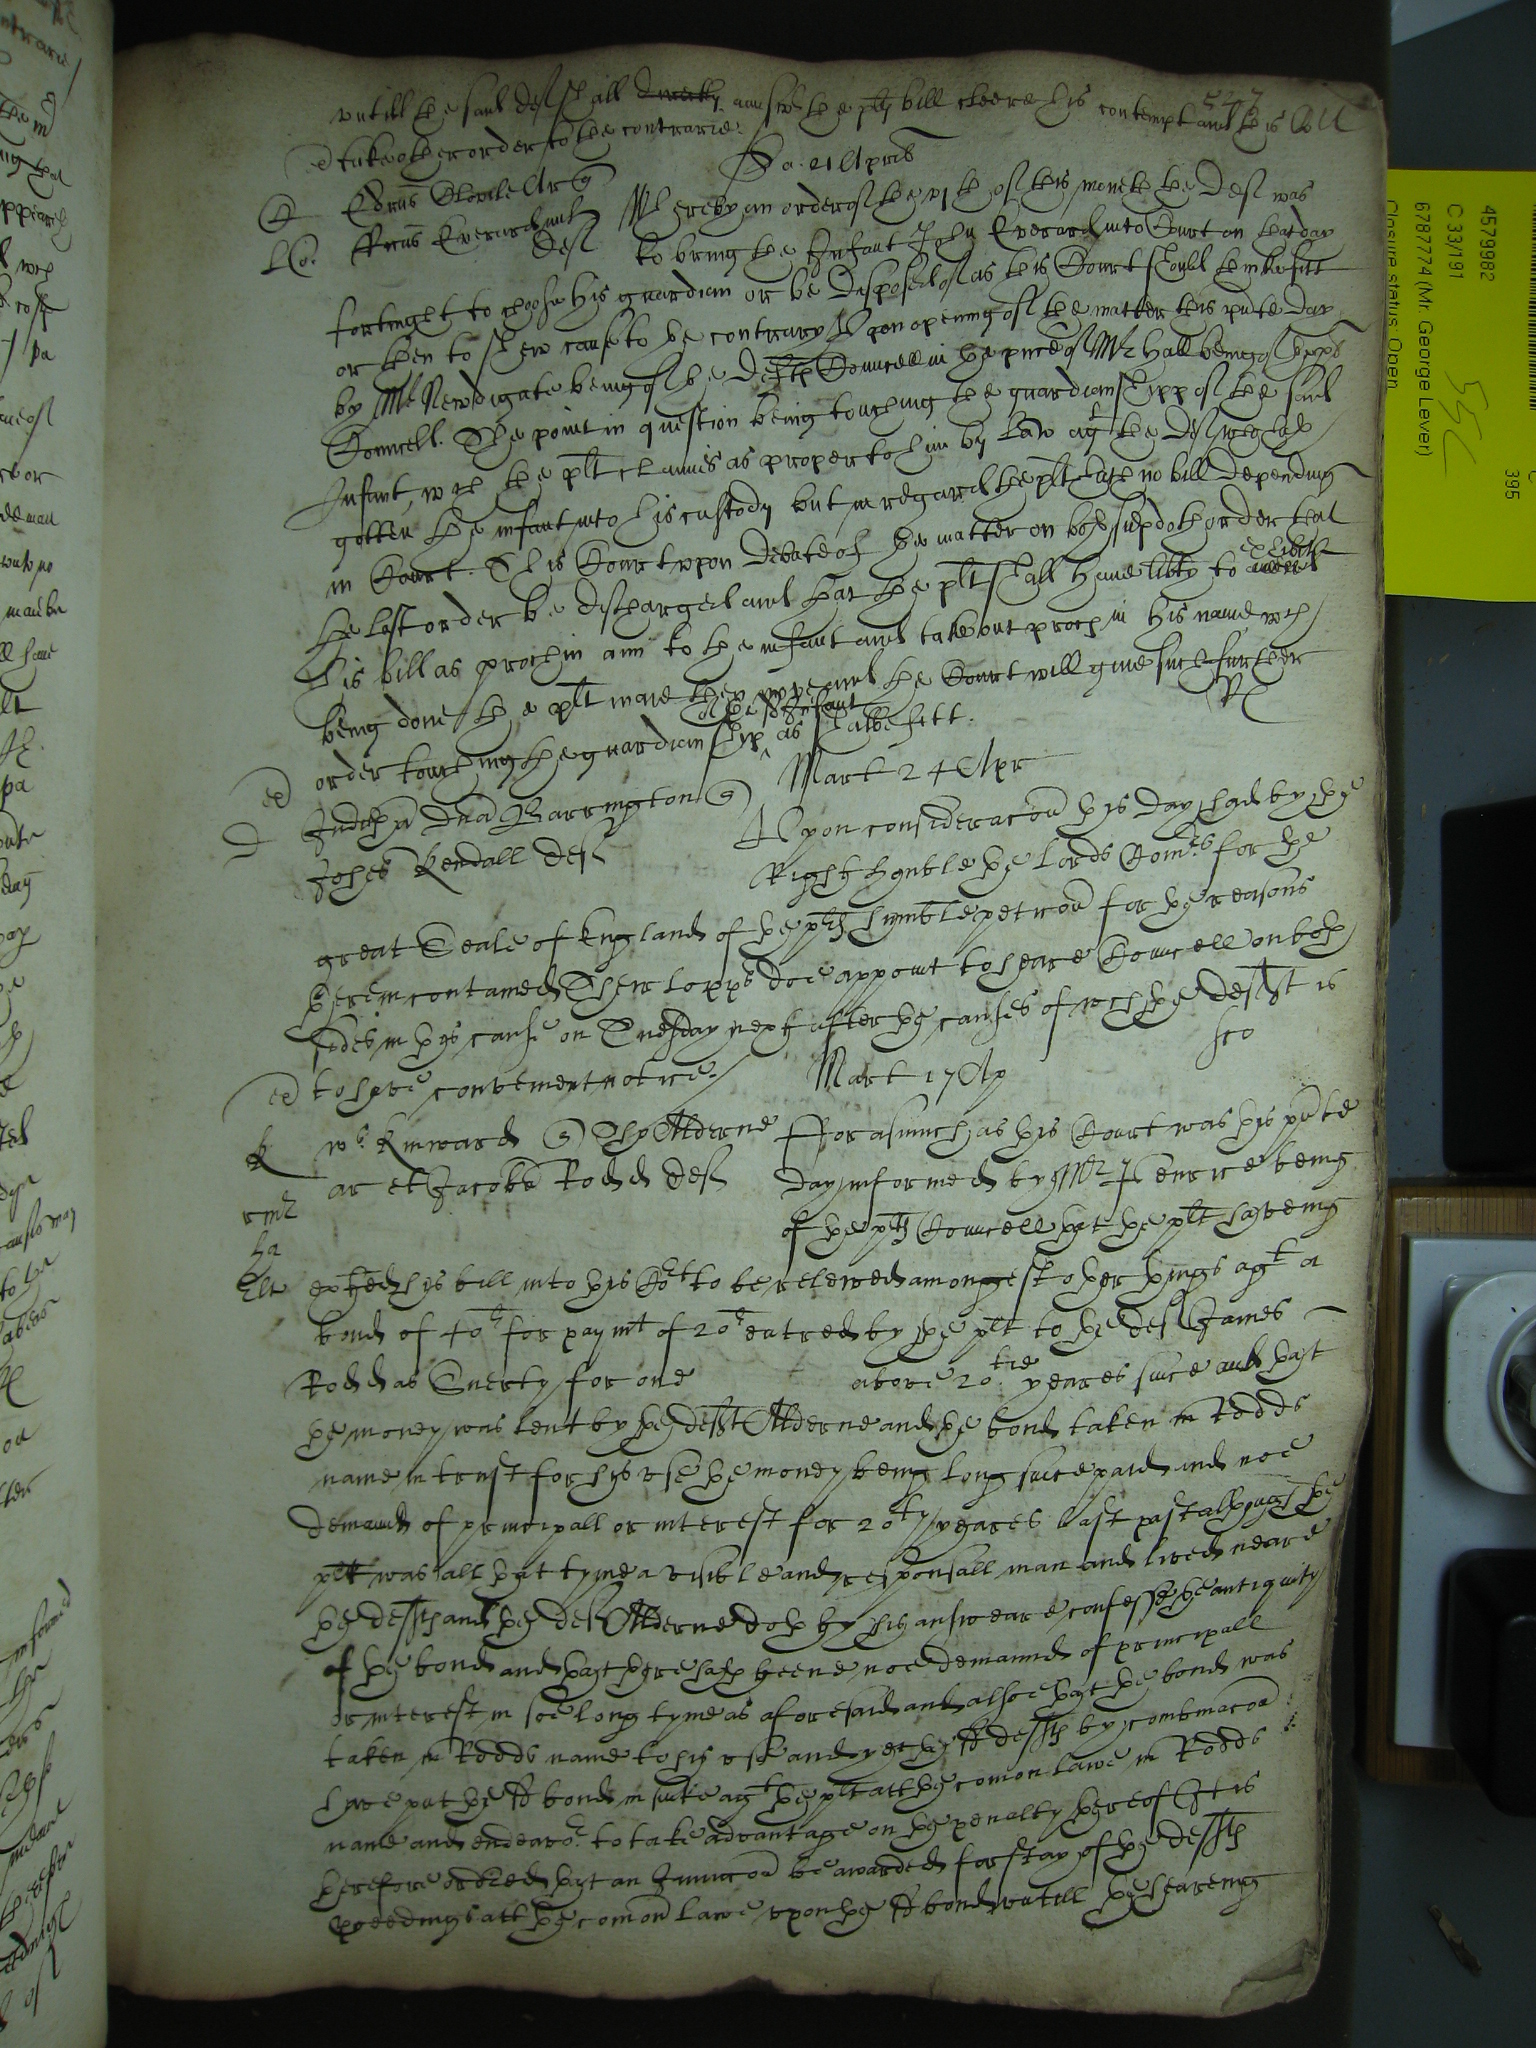 untill the said deft shall directly answere the plts bill cleere his contempt and this Co
take other order to the contrarie.
547
Sa. 21 Apris
Edrus Steele Ar q
ffrcus Everard
deft
Whereby an order of the vjth of this moneth the Deft was
to bring the Infant Jn Everard into Court on that day
fortnight to choose his guardian or be disposed of as this Court should thinke fitt
or then to shew cause to the contrary Upon opening of the matter this pnte day
by Mr Newdigate being of the Defts Councell in the pnce of Mr Hall being of thother
Councell. The point in question being touching the guardianshipp of the said
Infant, wch the plt claimes as proper to him by Law agt the Deft who hath
gotten the infant into his custody but in regard the plt hath no bill depending
in Court. This Court upon debate of the matter on both sides doth order that
the last order be discharged and that the plt shall have libty to exhibite
his bill as prochin ami to the infant and take out proces in his name wch
being done the plt maie then move and the Court will give such further
order touching the guardianshipp of the sd Infant as shalbe fitt.
Rl
Mart 24 Apr
D
Juditha Dna Barrington q
Johes Kendall deft
Upon consideracon this day had by the
Right honble the Lords Comrs for the
great Seale of England of the plts humble peticon for the reasons
therein contained Their lopps doe appoint to heare Councell on both
sides in this cause on Tuesday next after the causes of wch the deft is
to have convenient notice.
Mart 17 Ap
K
Ws Kinward q Tho Alderne
ar et Jacobu Rodd deft
Forasmuch as this Court was this pnte
day informed by Mr Fenrice being
of the plts Councell that the plt having
exhited his bill into this Cort to be releived amongest other things agt a
bond of 40l for paymt of 20l entred by the plt to the deft James
Rodd as Suerty for one above 20tie yeares since and that
the money was lent by the deft Alderne and the bond taken in Rodds
name in trust for his use the money being long since paid and noe
demaund of principall or interest for 20ty yeares last past although the
plt was all that tyme a visible and responsall man and lived neare
the defts and the deft Alderne doth by his answeare confesse the antiquity
of the bond and that there hath beene noe demaund of principall
or interest in soe long tyme as aforesaid and alsoe that the bond was
taken in Rodds name to his use and yet the sd defts by combinacon
have put the sd bond in suite agt the plt att the comon lawe in Rodds
name and endeavor to take advantage on the penalty thereof It is
therefore ordered that an Iniuncon be awarded for stay of the defts
pceedings att the comon lawe upon the sd bond untill the heareing
4579982
C 33/191
6787774 (Mr. George Lever)
Closure status: Open
55C
395